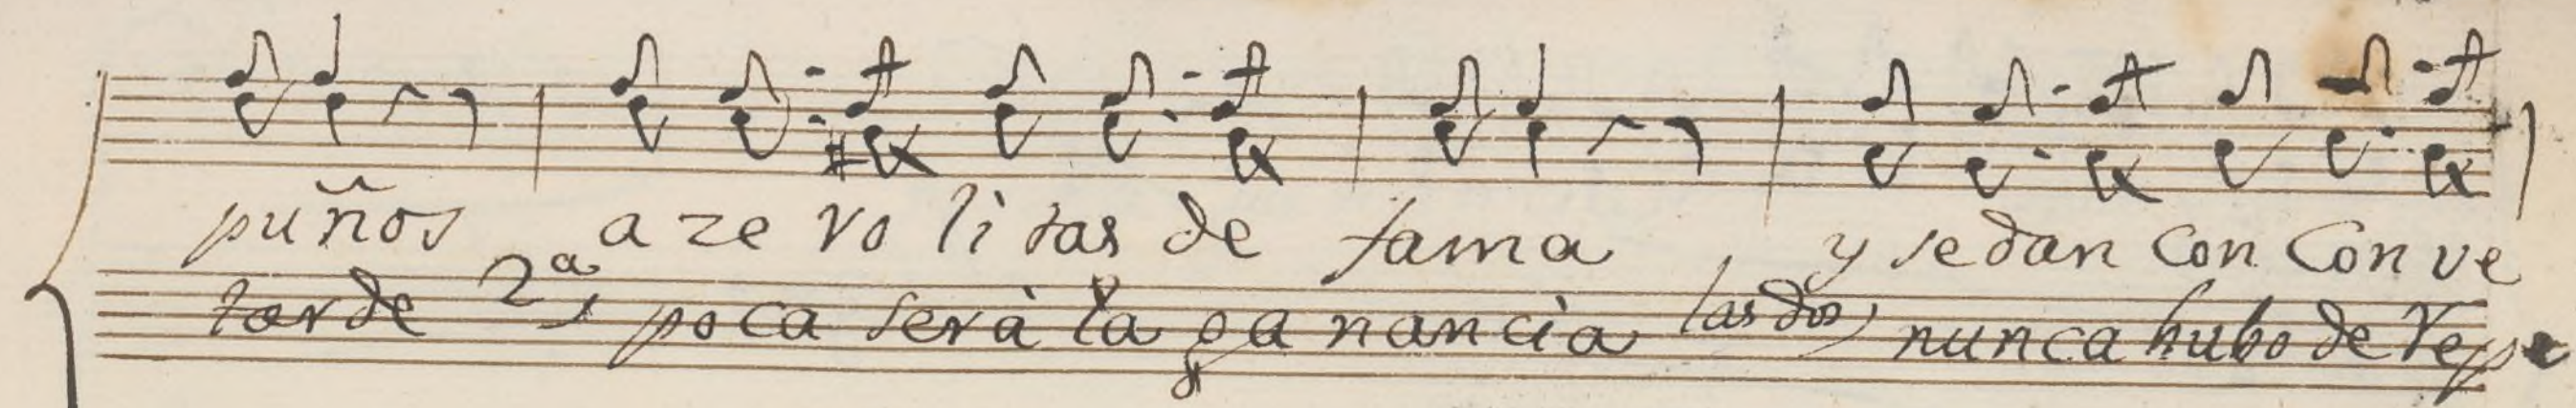 puños a ze vo li tas de fama y se dan con Con ve
tarde 2ª poca serà la ga nancia las dos nunca hubo de Vepe